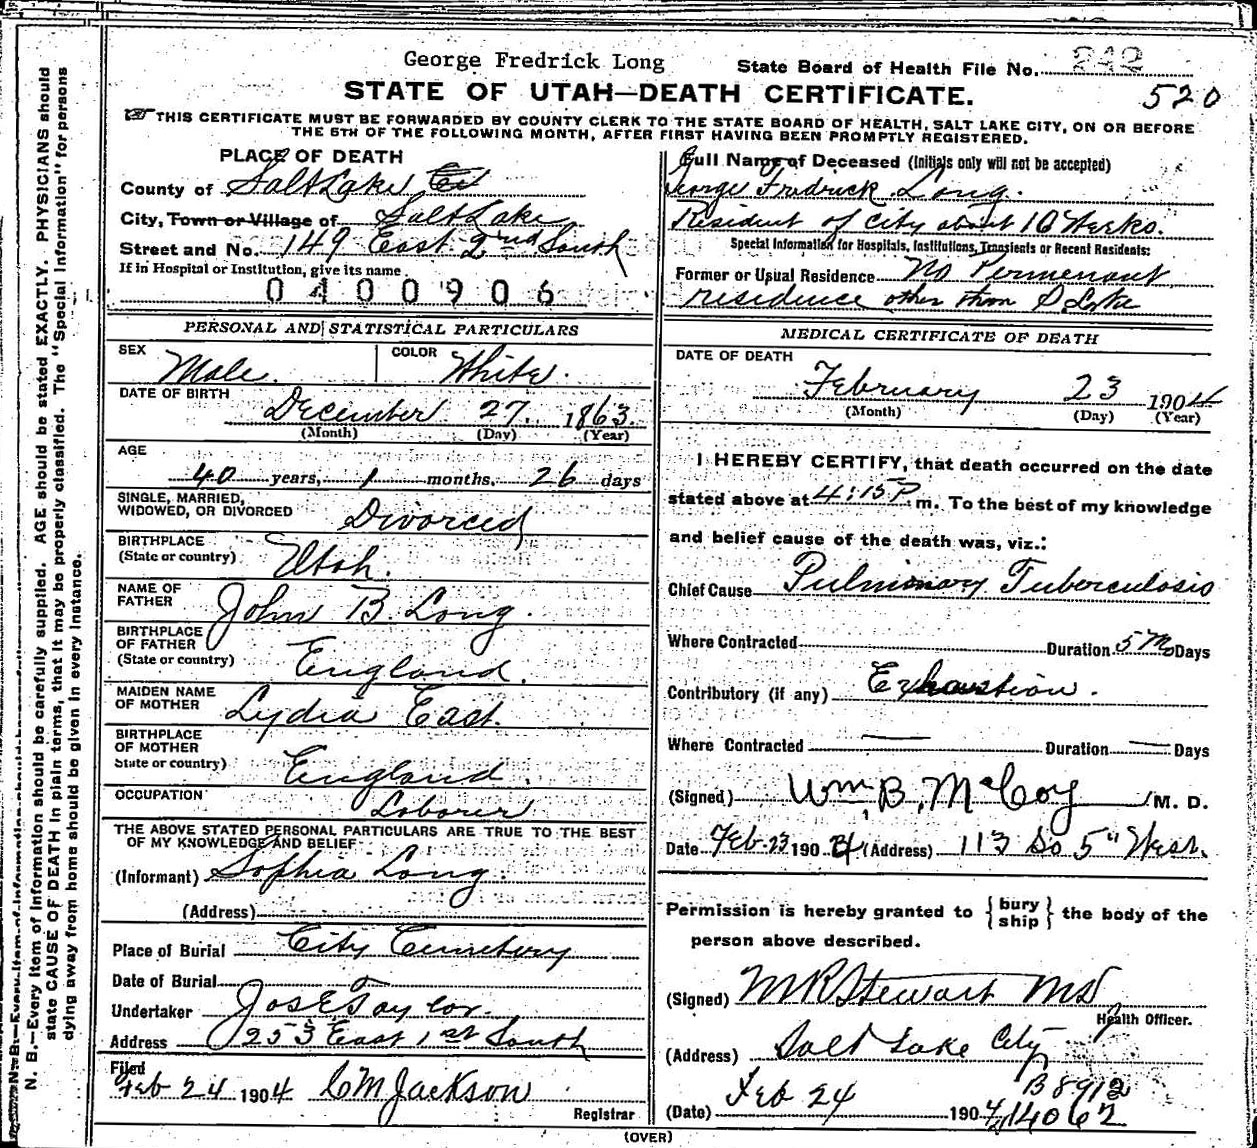 George Fredrick Long
State Board of Health File No. 242
520
STATE OF UTAH—DEATH CERTIFICATE.
THIS CERTIFICATE MUST BE FORWARDED BY COUNTY CLERK TO THE STATE BOARD OF HEALTH, SALT LAKE CITY, ON OR BEFORE
THE 5TH OF THE FOLLOWING MONTH, AFTER FIRST HAVING BEEN PROMPTLY REGISTERED.
PLACE OF DEATH
County of Salt Lake
City, Town or Village of Salt Lake
Street and No. 149 East 2nd South
If in Hospital or Institution, give its name
0400906
PERSONAL AND STATISTICAL PARTICULARS
SEX Male. COLOR White.
DATE OF BIRTH
December 27, 1863
(Month) (Day) (Year)
AGE
40 years, 1 months, 26 days
SINGLE, MARRIED,
WIDOWED, OR DIVORCED Divorced
BIRTHPLACE
(State or country) Utah.
NAME OF
FATHER John B. Long.
BIRTHPLACE
OF FATHER
(State or country) England.
MAIDEN NAME
OF MOTHER Lydia East.
BIRTHPLACE
OF MOTHER
State or country) England.
OCCUPATION Laborer
THE ABOVE STATED PERSONAL PARTICULARS ARE TRUE TO THE BEST
OF MY KNOWLEDGE AND BELIEF
(Informant) Sophia Long.
(Address)
Place of Burial City Cemetery
Date of Burial
Undertaker Jos E Taylor.
Address 253 East 1st South
Filed
Feb 24 1904 C M Jackson
Registrar
Full Name of Deceased (Initials only will not be accepted)
George Fredrick Long.
Resident of city about 10 Weeks.
Special Information for Hospitals, Institutions, Transients or Recent Residents:
Former or Usual Residence No Permenant
residence other than S Lake
MEDICAL CERTIFICATE OF DEATH
DATE OF DEATH
February 23 1904
(Month) (Day) (Year)
I HEREBY CERTIFY, that death occurred on the date
stated above at 4:15 P m. To the best of my knowledge
and belief cause of the death was, viz.:
Chief Cause Pulmonary Tuberculosis
Where Contracted Duration 5 Mo Days
Contributory (if any) Exhaustion.
Where Contracted — Duration — Days
(Signed) Wm B. McCoy M. D.
Date Feb. 23 1904 (Address) 113 So 5" West.
Permission is hereby granted to { bury ship } the body of the
person above described.
(Signed) M R Stewart MD
Health Officer.
(Address) Salt Lake City
B 8912
(Date) Feb 24 1904 14062
(OVER)
N. B.—Every item of information should be carefully supplied. AGE should be stated EXACTLY. PHYSICIANS should
state CAUSE OF DEATH in plain terms, that it may be properly classified. The "Special Information" for persons
dying away from home should be given in every instance.